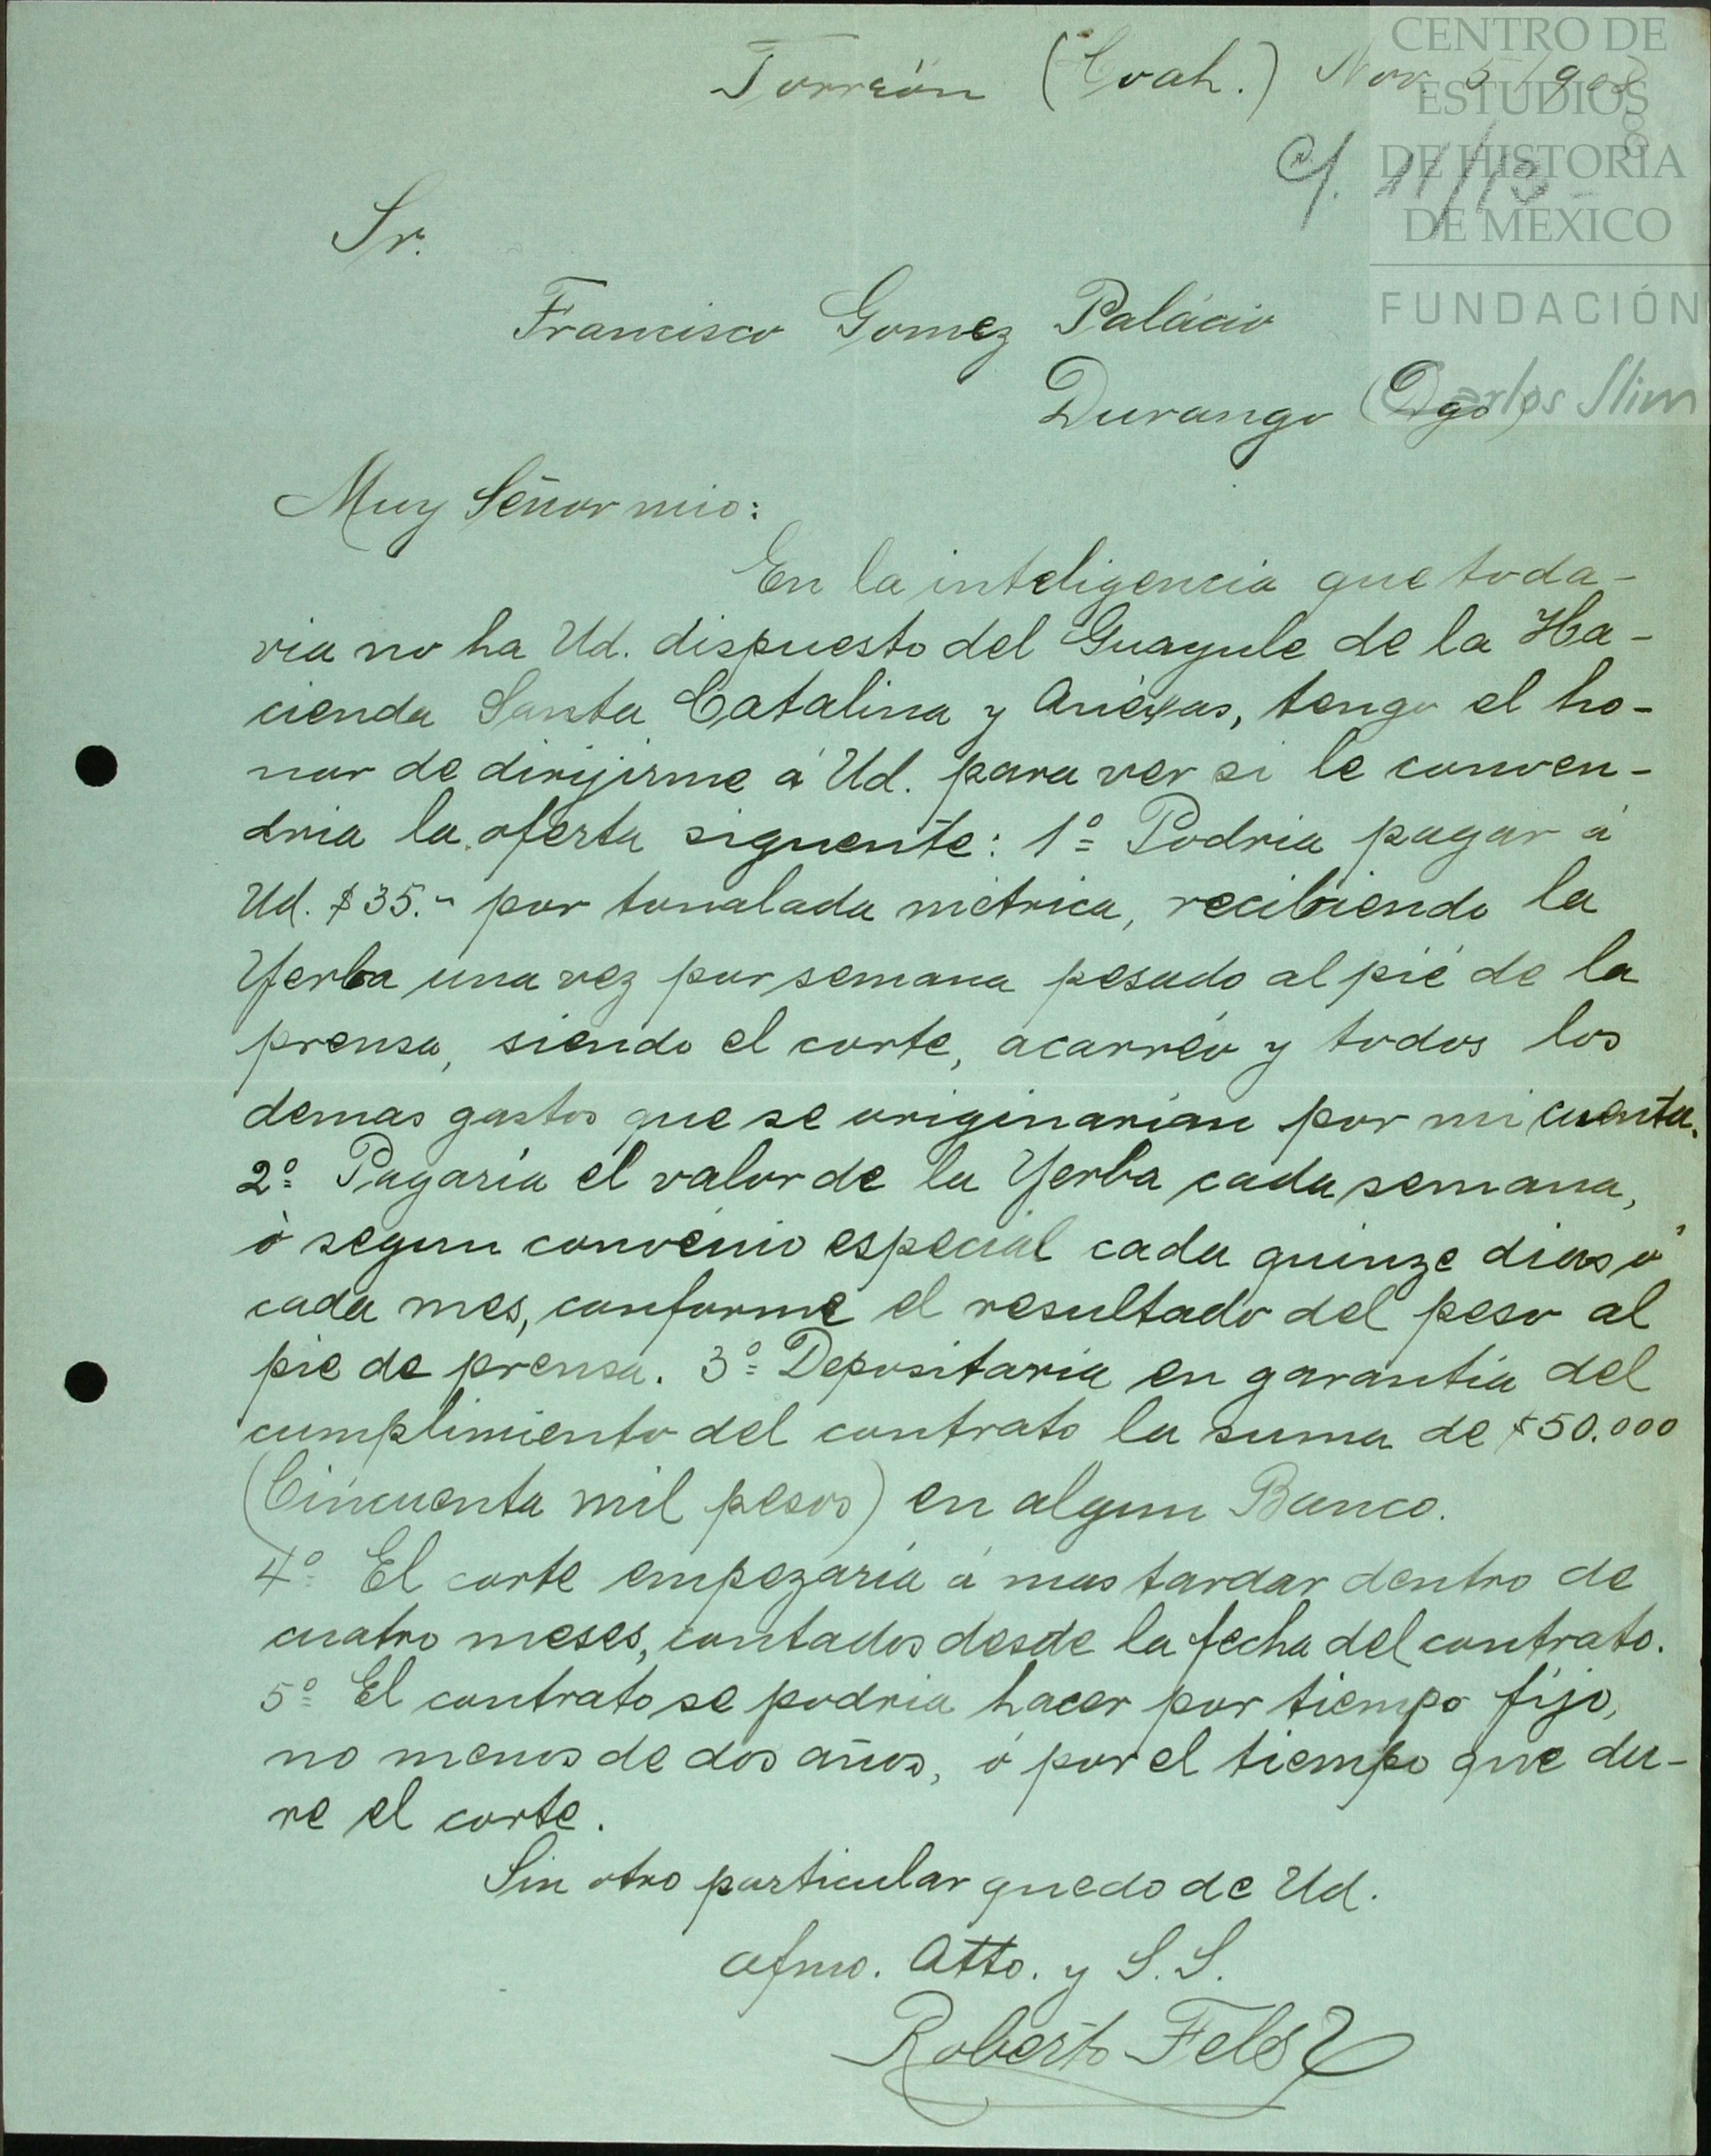 Torreón (Coah.) Nov. 5 1908
C/. 11/13
CENTRO DE
ESTUDIOS
DE HISTORIA
DE MEXICO
FUNDACIÓN
Carlos Slim
Sr.
Francisco Gomez Palácio
Durango (Dgo)
Muy Señor mio:
En la inteligencia que toda-
via no ha Ud. dispuesto del Guayule de la Ha-
cienda Santa Catalina y Anéxas, tengo el ho-
nor de dirijirme á Ud. para ver si le conven-
dria la oferta siguente: 1º Podria pagar á
Ud. $35.- por tonalada métrica, recibiendo la
Yerba una vez por semana pesado al pié de la
prensa, siendo el corte, acarréo y todos los
demas gastos que se originarian por mi cuenta.
2º Pagaria el valor de la Yerba cada semana,
ò segun convénio especial cada quinze dias ó
cada mes, conforme el resultado del peso al
pie de prensa. 3º Depositaria en garantia del
cumplimiento del contrato la suma de $50.000
(Cincuenta mil pesos) en algun Banco.
4º El corte empezaria á mas tardar dentro de
cuatro meses, contados desde la fecha del contrato.
5º El contrato se podria hacer por tiempo fijo,
no menos de dos años, ó por el tiempo que du-
re el corte.
Sin otro particular quedo de Ud.
afmo. Atto. y S.S.
Roberto Fels